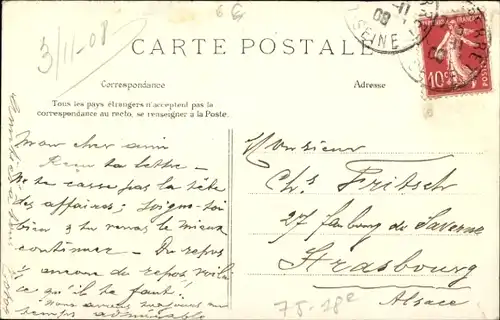 3/11-08
6
-11
08
SEINE
10
POSTES
CARTE POSTALE
Correspondance
Adresse
Tous les pays étrangers n'acceptent pas la
correspondance au recto, se renseigner à la Poste.
Mon cher ami
Reçu ta lettre -
Ne te casse pas la tête
des affaires; soigne-toi
bien & tu verras le mieux
continuer - Du repos
encore du repos, voilà
ce qu'il te faut.
Nous avons toujours un
temps admirable
Monsieur
Chs Fritsch
27 faubourg de Saverne
Strasbourg
Alsace
75-18e